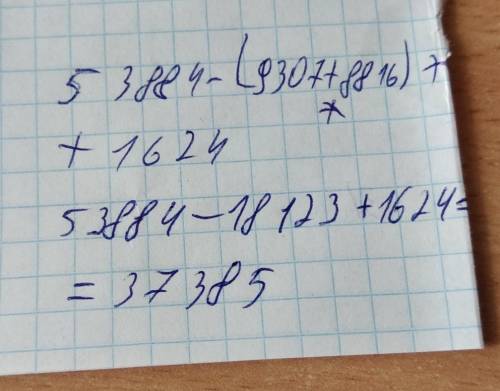 53884-(9307+8816)+
+1624
53884-18123+1624=
=37385